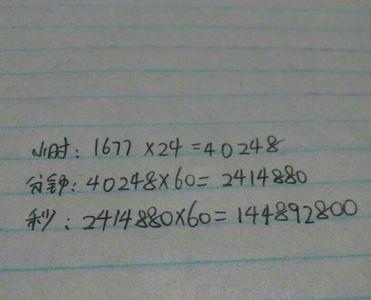 小时：1677×24=40248
分钟：40248×60=2414880
秒：2414880×60=144892800